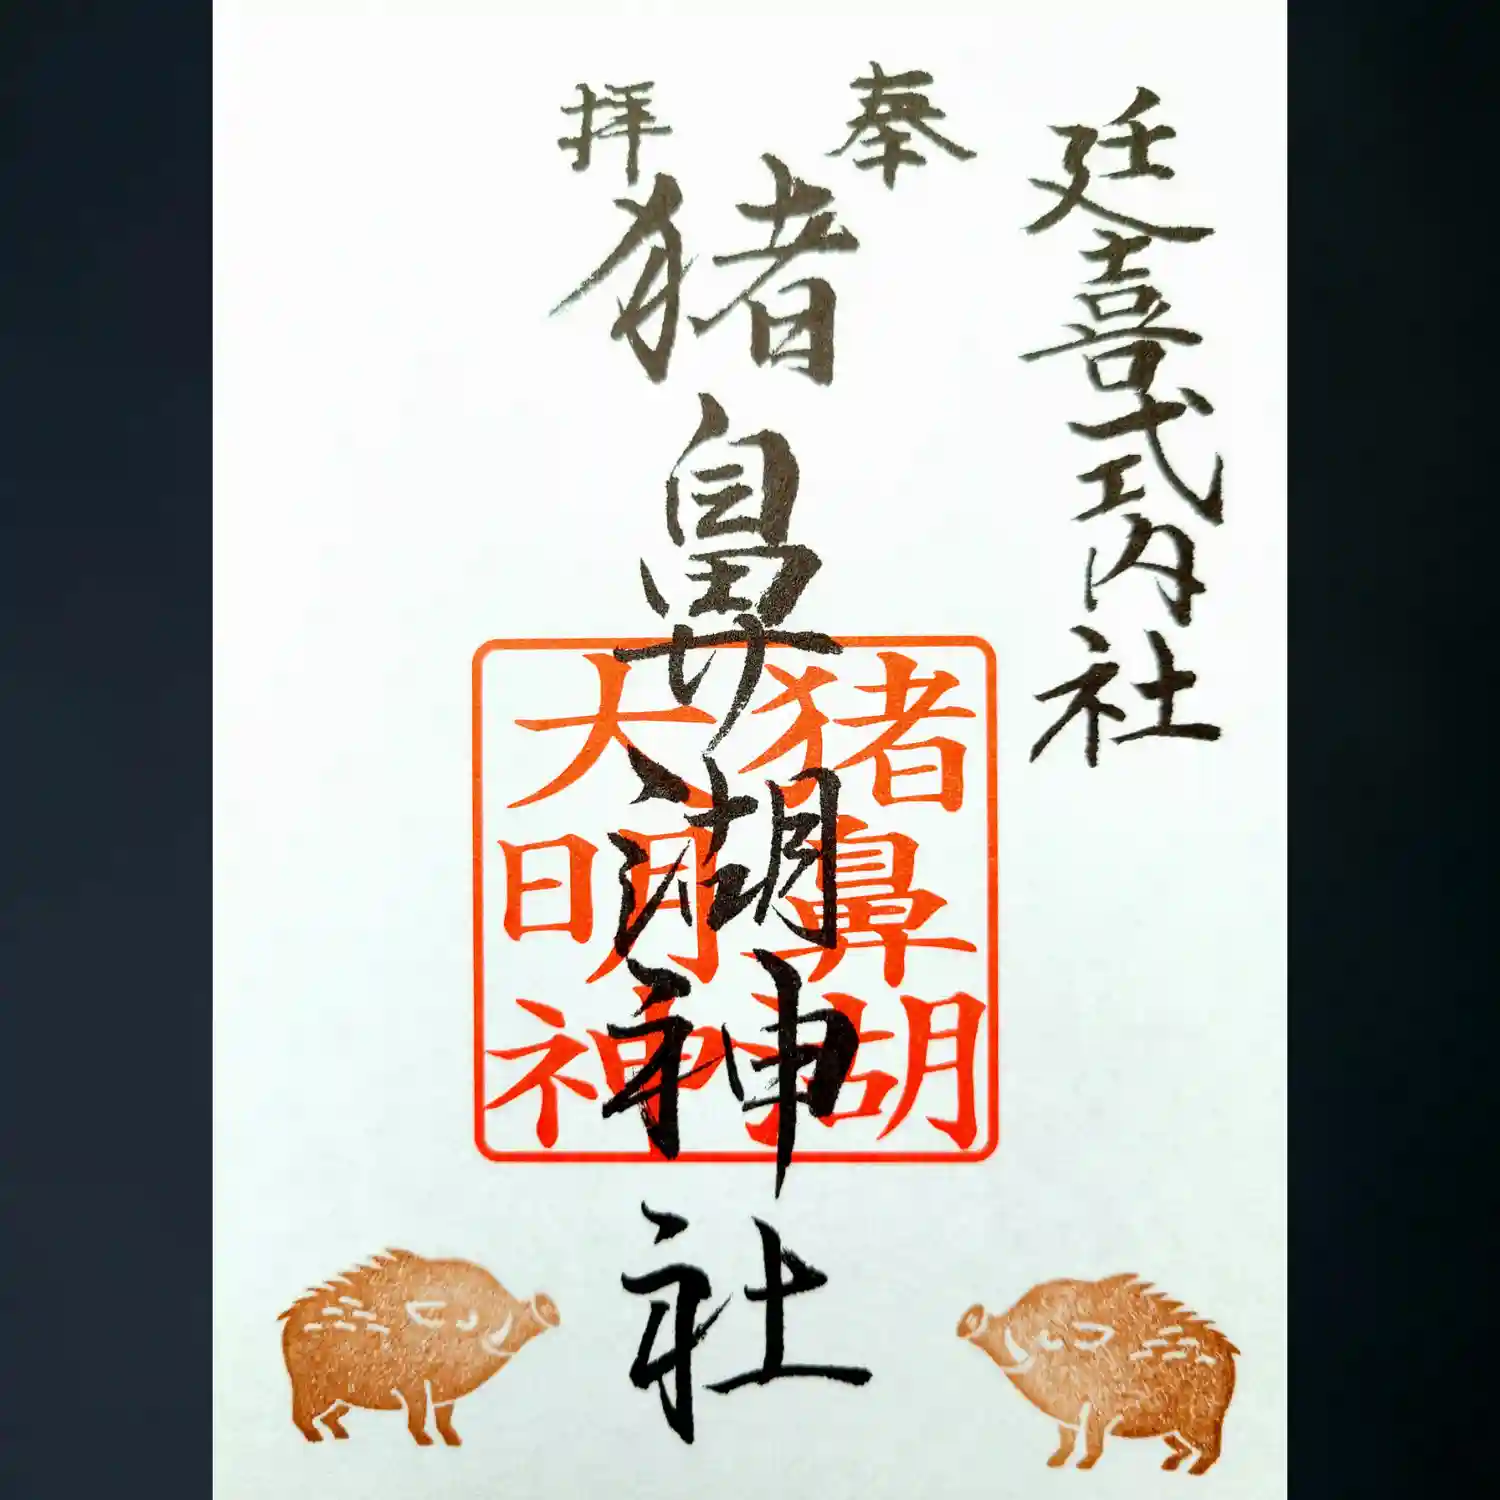 廷喜式内社
奉拝
猪鼻湖神社
猪鼻湖
大明神